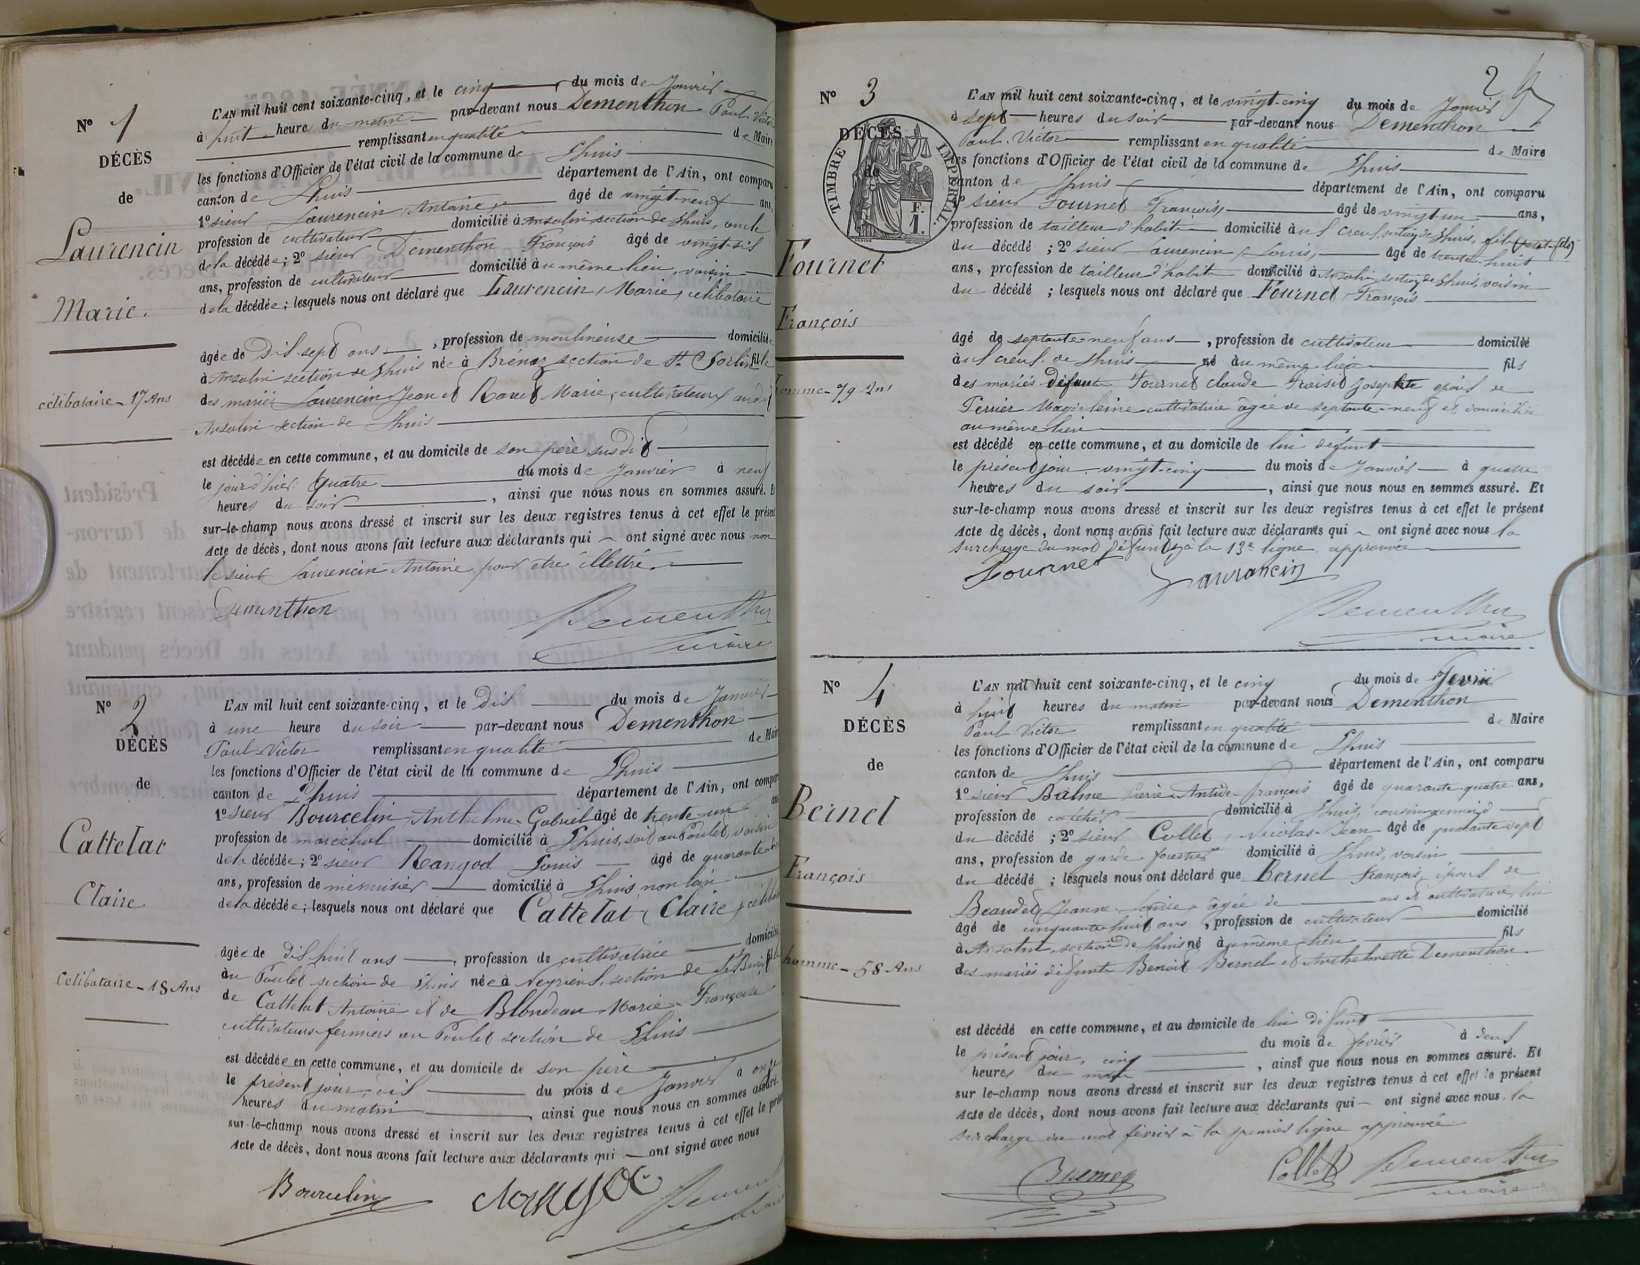 No 1
DÉCÈS
de
Laurencin
Marie.
célibataire - 17 Ans
L'AN mil huit cent soixante-cinq, et le cinq du mois de Janvier
à huit heures du matin par-devant nous Dementhon Paul Victor
remplissant en qualité de Maire
les fonctions d'Officier de l'état civil de la commune de Lhuis
canton de Lhuis département de l'Ain, ont comparu
1° sieur Laurencin Antoine âgé de vingt-neuf ans,
profession de cultivateur domicilié à Ansolin section de Lhuis, oncle
de la décédée; 2° sieur Dementhon François âgé de vingt-six
ans, profession de cultivateur domicilié au même lieu, voisin
de la décédée; lesquels nous ont déclaré que Laurencin, Marie, célibataire
âgée de dix-sept ans, profession de moulineuse domiciliée
à Ansolin section de Lhuis née à Brénaz section de St Sorlin fille
des mariés Laurencin Jean et Marie, cultivateurs audit
Ansolin section de Lhuis
est décédée en cette commune, et au domicile de son père susdit
le jour d'hier quatre du mois de Janvier à neuf
heures du soir, ainsi que nous nous en sommes assuré. Et
sur-le-champ nous avons dressé et inscrit sur les deux registres tenus à cet effet le présent
Acte de décès, dont nous avons fait lecture aux déclarants qui ont signé avec nous non
le sieur Laurencin Antoine pour être illettré.
Dementhon
Dementhon
maire
No 2
DÉCÈS
de
Cattelat
Claire
Célibataire - 18 Ans
L'AN mil huit cent soixante-cinq, et le dix du mois de Janvier
à une heure du soir par-devant nous Dementhon
Paul Victor remplissant en qualité de Maire
les fonctions d'Officier de l'état civil de la commune de Lhuis
canton de Lhuis département de l'Ain, ont comparu
1° sieur Bourcelin Anthelme Gabriel âgé de trente-un ans
profession de maréchal domicilié à Lhuis, soit au Poulet, voisin
de la décédée; 2° sieur Rangod Louis âgé de quarante
ans, profession de menuisier domicilié à Lhuis non loin
de la décédée; lesquels nous ont déclaré que Cattelat, Claire, célibataire
âgée de dix huit ans, profession de cultivatrice domiciliée
au Poulet section de Lhuis née à Neyrieu section de St Benoît fille
de Cattelat Antoine et de Blondeau Marie Françoise
cultivateurs fermiers au Poulet section de Lhuis
est décédée en cette commune, et au domicile de son père
le présent jour, dix du mois de Janvier à onze
heures du matin, ainsi que nous nous en sommes assuré.
sur-le-champ nous avons dressé et inscrit sur les deux registres tenus à cet effet le présent
Acte de décès, dont nous avons fait lecture aux déclarants qui ont signé avec nous
Bourcelin
Rangod
2
No 3
DÉCÈS
de
TIMBRE IMPÉRIAL.
F.
1.
Fournet
François
homme - 79 Ans
L'AN mil huit cent soixante-cinq, et le vingt-cinq du mois de Janvier
à sept heures du soir par-devant nous Dementhon
Paul Victor remplissant en qualité de Maire
les fonctions d'Officier de l'état civil de la commune de Lhuis
canton de Lhuis département de l'Ain, ont comparu
1° sieur Fournet François âgé de vingt un ans,
profession de tailleur d'habit domicilié au Creux, section de Lhuis, fils (petit-fils)
du décédé; 2° sieur Laurencin Louis âgé de trente-huit
ans, profession de tailleur d'habit domicilié à Ansolin section de Lhuis, voisin
du décédé; lesquels nous ont déclaré que Fournet François
âgé de septante-neuf ans, profession de cultivateur domicilié
au Creux de Lhuis né au même lieu fils
des mariés défunts Fournet Claude Fraisse Josephte époux de
Perrier Magdeleine cultivatrice âgée de septante-neuf et domiciliée
au même lieu
est décédé en cette commune, et au domicile de lui défunt
le présent jour vingt-cinq du mois de Janvier à quatre
heures du soir, ainsi que nous nous en sommes assuré. Et
sur-le-champ nous avons dressé et inscrit sur les deux registres tenus à cet effet le présent
Acte de décès, dont nous avons fait lecture aux déclarants qui ont signé avec nous la
surcharge du mot défunts à la 13e ligne approuvée
Fournet
Laurancin
Dementhon
maire
No 4
DÉCÈS
de
Bernet
François
homme - 58 Ans
L'AN mil huit cent soixante-cinq, et le cinq du mois de Fevrier
à huit heures du matin par-devant nous Dementhon
Paul Victor remplissant en qualité de Maire
les fonctions d'Officier de l'état civil de la commune de Lhuis
canton de Lhuis département de l'Ain, ont comparu
1° sieur Balme Pierre Antide François âgé de quarante quatre ans,
profession de domicilié à Lhuis, cousin germain
du décédé; 2° sieur Collet Nicolas Jean âgé de quarante sept
ans, profession de garde forestier domicilié à Lhuis, voisin
du décédé; lesquels nous ont déclaré que Bernet François, époux de
Beaudet Jeanne âgée de ans et cultivatrice, lui
âgé de cinquante huit ans, profession de cultivateur domicilié
à Ansolin section de Lhuis né au même lieu fils
des mariés défunts Benoît Bernet et Anthelmette Dementhon
est décédé en cette commune, et au domicile de lui défunt
le présent jour, cinq du mois de février à deux
heures du matin, ainsi que nous nous en sommes assuré. Et
sur le-champ nous avons dressé et inscrit sur les deux registres tenus à cet effet le présent
Acte de décès, dont nous avons fait lecture aux déclarants qui ont signé avec nous. la
surcharge du mot février à la première ligne approuvée
Collet
Dementhon
maire